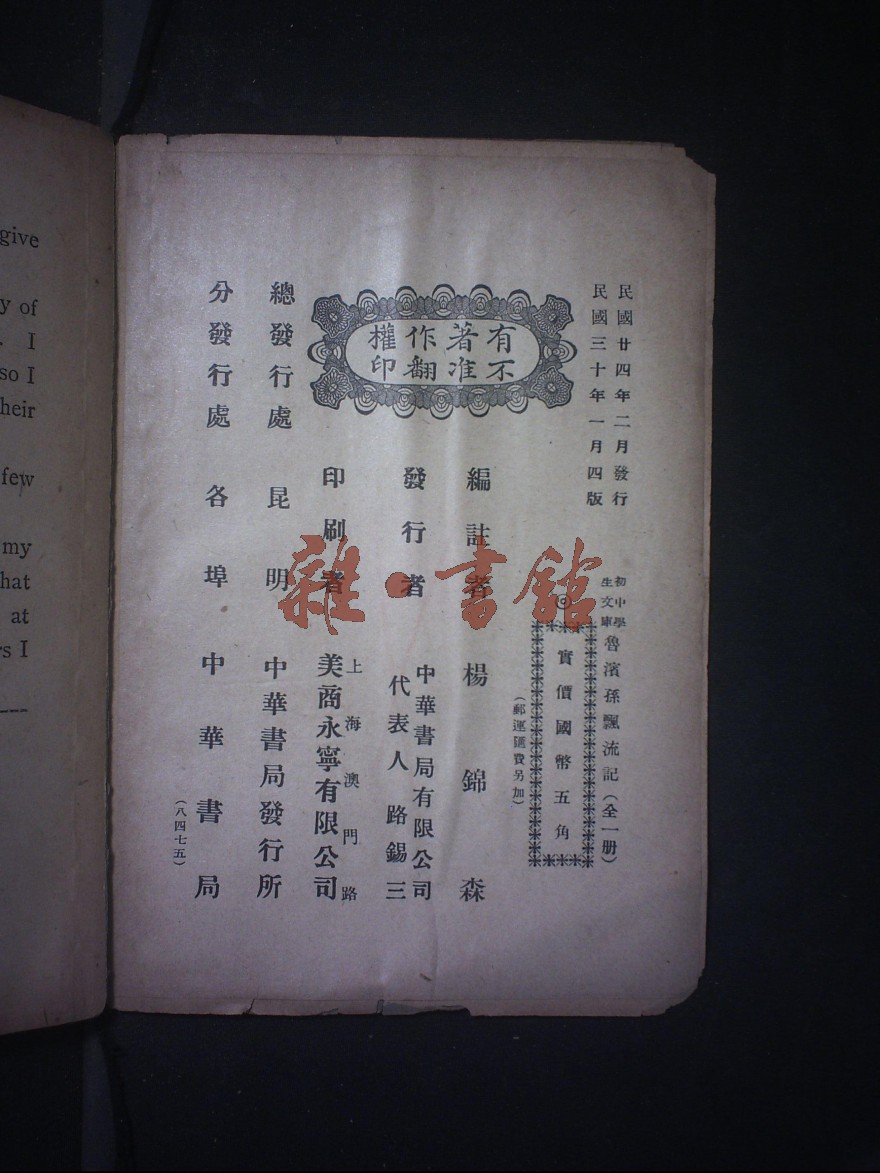 民國廿四年二月發行
民國三十年一月四版
初中學
生文庫
魯濱孫飄流記（全一册）
◎
實價國幣五角
（郵運匯費另加）
有著作權
不准翻印
編註者 楊錦森
發行者
中華書局有限公司
代表人 路錫三
印刷者
上海澳門路
美商永寧有限公司
總發行處 昆明 中華書局發行所
分發行處 各埠 中華書局
（八四七五）
雜·書館
give
y of
. I
so I
heir
few
my
hat
at
s I